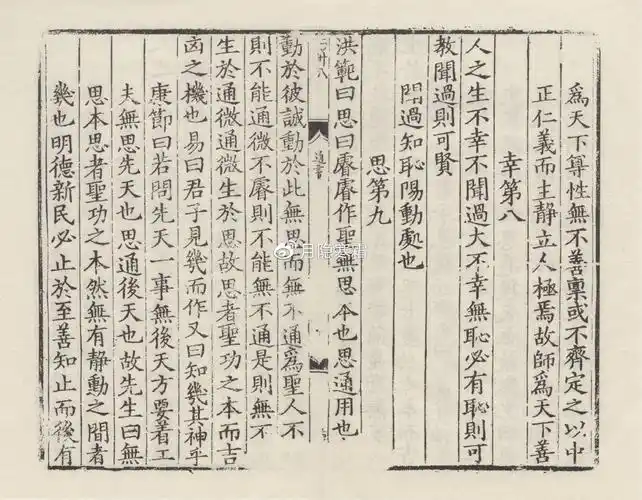 為天下尊性無不善稟或不齊定之以中
正仁義而主靜立人極焉故師為天下善
幸第八
人之生不幸不聞過大不幸無恥必有恥則可
教聞過則可賢
聞過知恥陽動處也
思第九
洪範曰思曰睿睿作聖無思本也思通用也
通書
動於彼誠動於此無思而無不通為聖人不
則不能通微不睿則不能無不通是則無不
生於通微通微生於思故思者聖功之本而吉
凶之機也易曰君子見幾而作又曰知幾其神乎
康節曰若問先天一事無後天方要著工
夫無思先天也思通後天也故先生曰無
思本思者聖功之本然無有靜動之間者
幾也明德新民必止於至善知止而後有
月隐寒霜